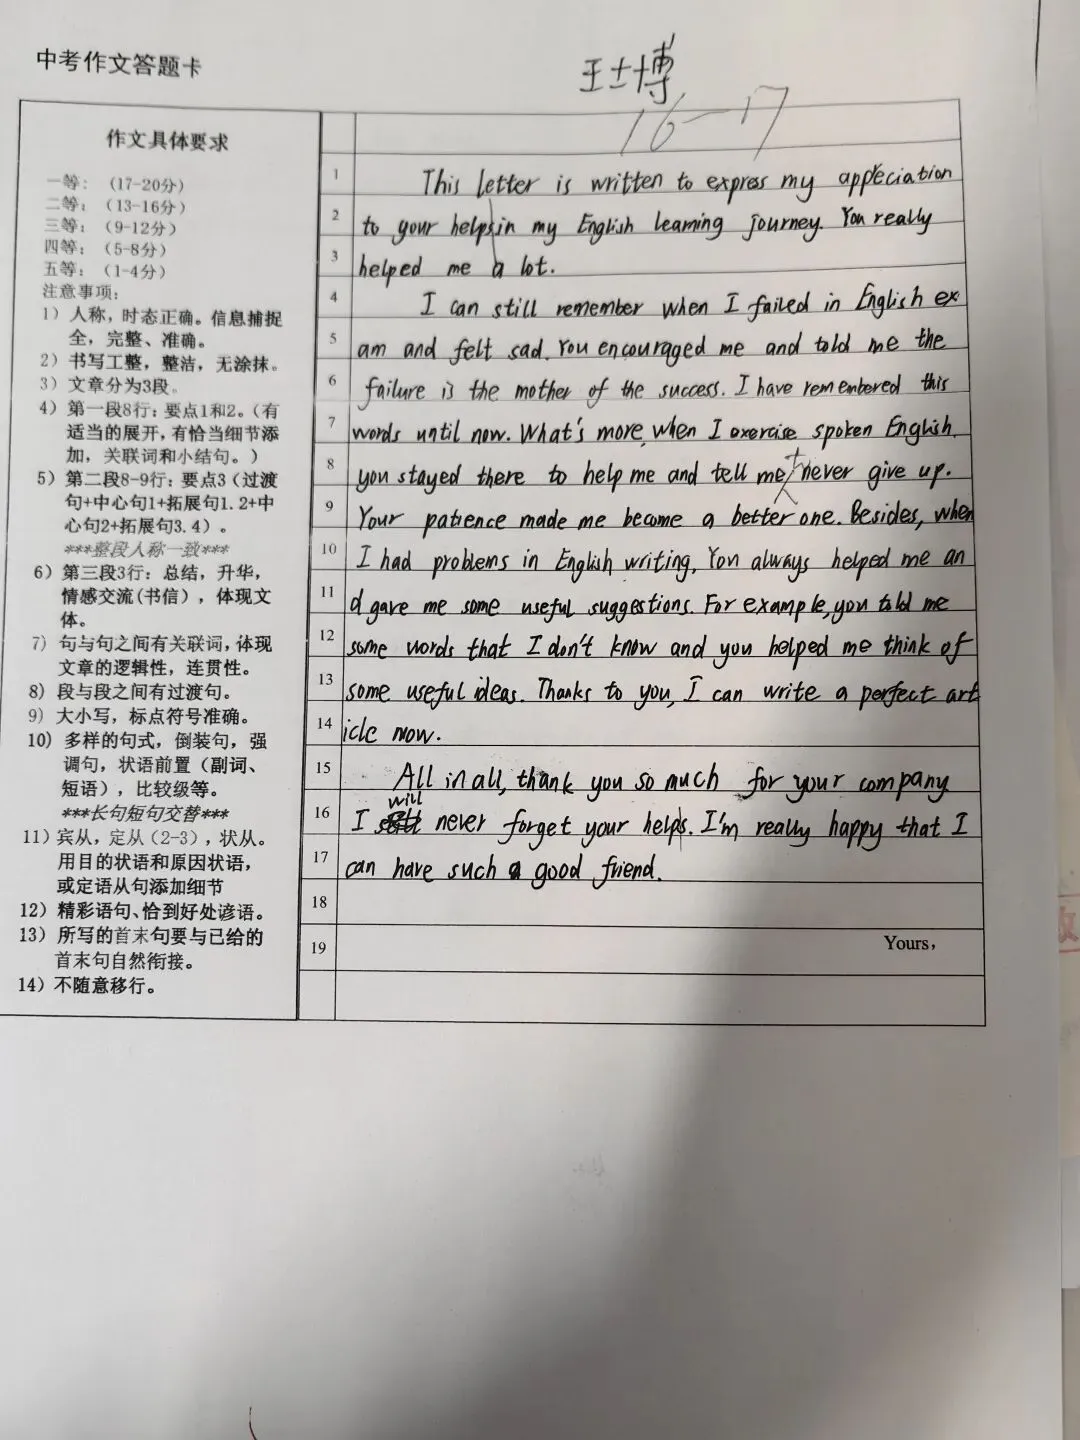 中考作文答题卡
王士博
16-17
作文具体要求
一等：（17-20分）
二等：（13-16分）
三等：（9-12分）
四等：（5-8分）
五等：（1-4分）
注意事项：
1）人称，时态正确。信息捕捉
全，完整、准确。
2）书写工整，整洁，无涂抹。
3）文章分为3段。
4）第一段8行：要点1和2。（有
适当的展开，有恰当细节添
加，关联词和小结句。）
5）第二段8-9行：要点3（过渡
句+中心句1+拓展句1.2+中
心句2+拓展句3.4）。
***整段人称一致***
6）第三段3行：总结，升华，
情感交流(书信)，体现文
体。
7）句与句之间有关联词，体现
文章的逻辑性，连贯性。
8）段与段之间有过渡句。
9）大小写，标点符号准确。
10）多样的句式，倒装句，强
调句，状语前置（副词、
短语），比较级等。
***长句短句交替***
11）宾从，定从（2-3），状从。
用目的状语和原因状语，
或定语从句添加细节
12）精彩语句、恰到好处谚语。
13）所写的首末句要与已给的
首末句自然衔接。
14）不随意移行。
1 This letter is written to express my appreciation
2 to your helps in my English learning journey. You really
3 helped me a lot.
4 I can still remember when I failed in English ex
5 am and felt sad. You encouraged me and told me the
6 failure is the mother of the success. I have remembered this
7 words until now. What's more, when I exercise spoken English,
8 you stayed there to help me and tell me never give up.
9 Your patience made me become a better one. Besides, when
10 I had problems in English writing, You always helped me an
11 d gave me some useful suggestions. For example, you told me
12 some words that I don't know and you helped me think of
13 some useful ideas. Thanks to you, I can write a perfect art
14 icle now.
15 All in all, thank you so much for your company
will
16 I never forget your helps. I'm really happy that I
17 can have such a good friend.
18
19 Yours,